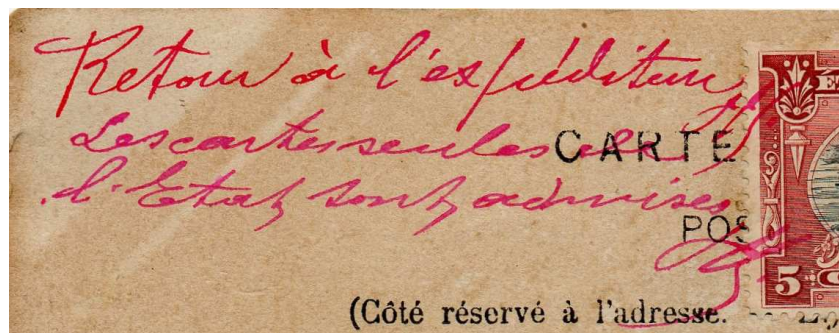 Retour à l'expéditeur
Les cartes seules de
l'Etat sont admises
CARTE
POS
(Côté réservé à l'adresse.
5